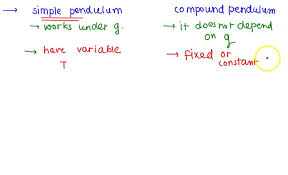 → simple pendulum
compound pendulum
→ works under g.
→ it does not depend
on g
→ have variable
T
→ fixed or
constant